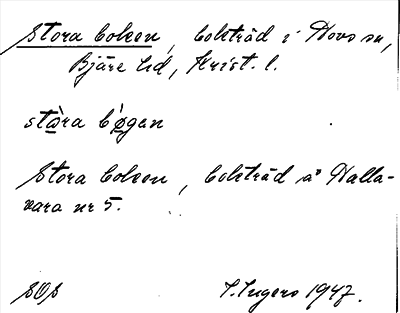 Stora boken, bokträd i Hovs sn,
Bjäre hd, Krist. l.
stòra bǿgan
Stora boken, bokträd å Halla-
vara nr 5.
SOS S. Ingers 1947.